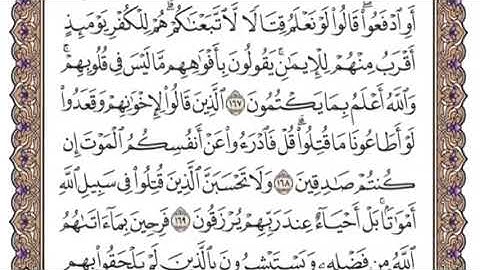 أَوِ ٱدْفَعُوا۟ ۖ قَالُوا۟ لَوْ نَعْلَمُ قِتَالًا لَّٱتَّبَعْنَـٰكُمْ ۗ هُمْ لِلْكُفْرِ يَوْمَئِذٍ
أَقْرَبُ مِنْهُمْ لِلْإِيمَـٰنِ ۚ يَقُولُونَ بِأَفْوَٰهِهِم مَّا لَيْسَ فِى قُلُوبِهِمْ ۗ
وَٱللَّهُ أَعْلَمُ بِمَا يَكْتُمُونَ ١٦٧ ٱلَّذِينَ قَالُوا۟ لِإِخْوَٰنِهِمْ وَقَعَدُوا۟
لَوْ أَطَاعُونَا مَا قُتِلُوا۟ ۗ قُلْ فَٱدْرَءُوا۟ عَنْ أَنفُسِكُمُ ٱلْمَوْتَ إِن
كُنتُمْ صَـٰدِقِينَ ١٦٨ وَلَا تَحْسَبَنَّ ٱلَّذِينَ قُتِلُوا۟ فِى سَبِيلِ ٱللَّهِ
أَمْوَٰتًۢا ۚ بَلْ أَحْيَآءٌ عِندَ رَبِّهِمْ يُرْزَقُونَ ١٦٩ فَرِحِينَ بِمَآ ءَاتَىٰهُمُ
ٱللَّهُ مِن فَضْلِهِۦ وَيَسْتَبْشِرُونَ بِٱلَّذِينَ لَمْ يَلْحَقُوا۟ بِهِم